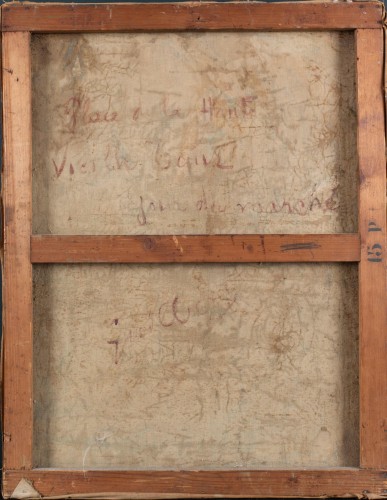 Place de la Haute
Vieille Tour
jour de marché
15 P